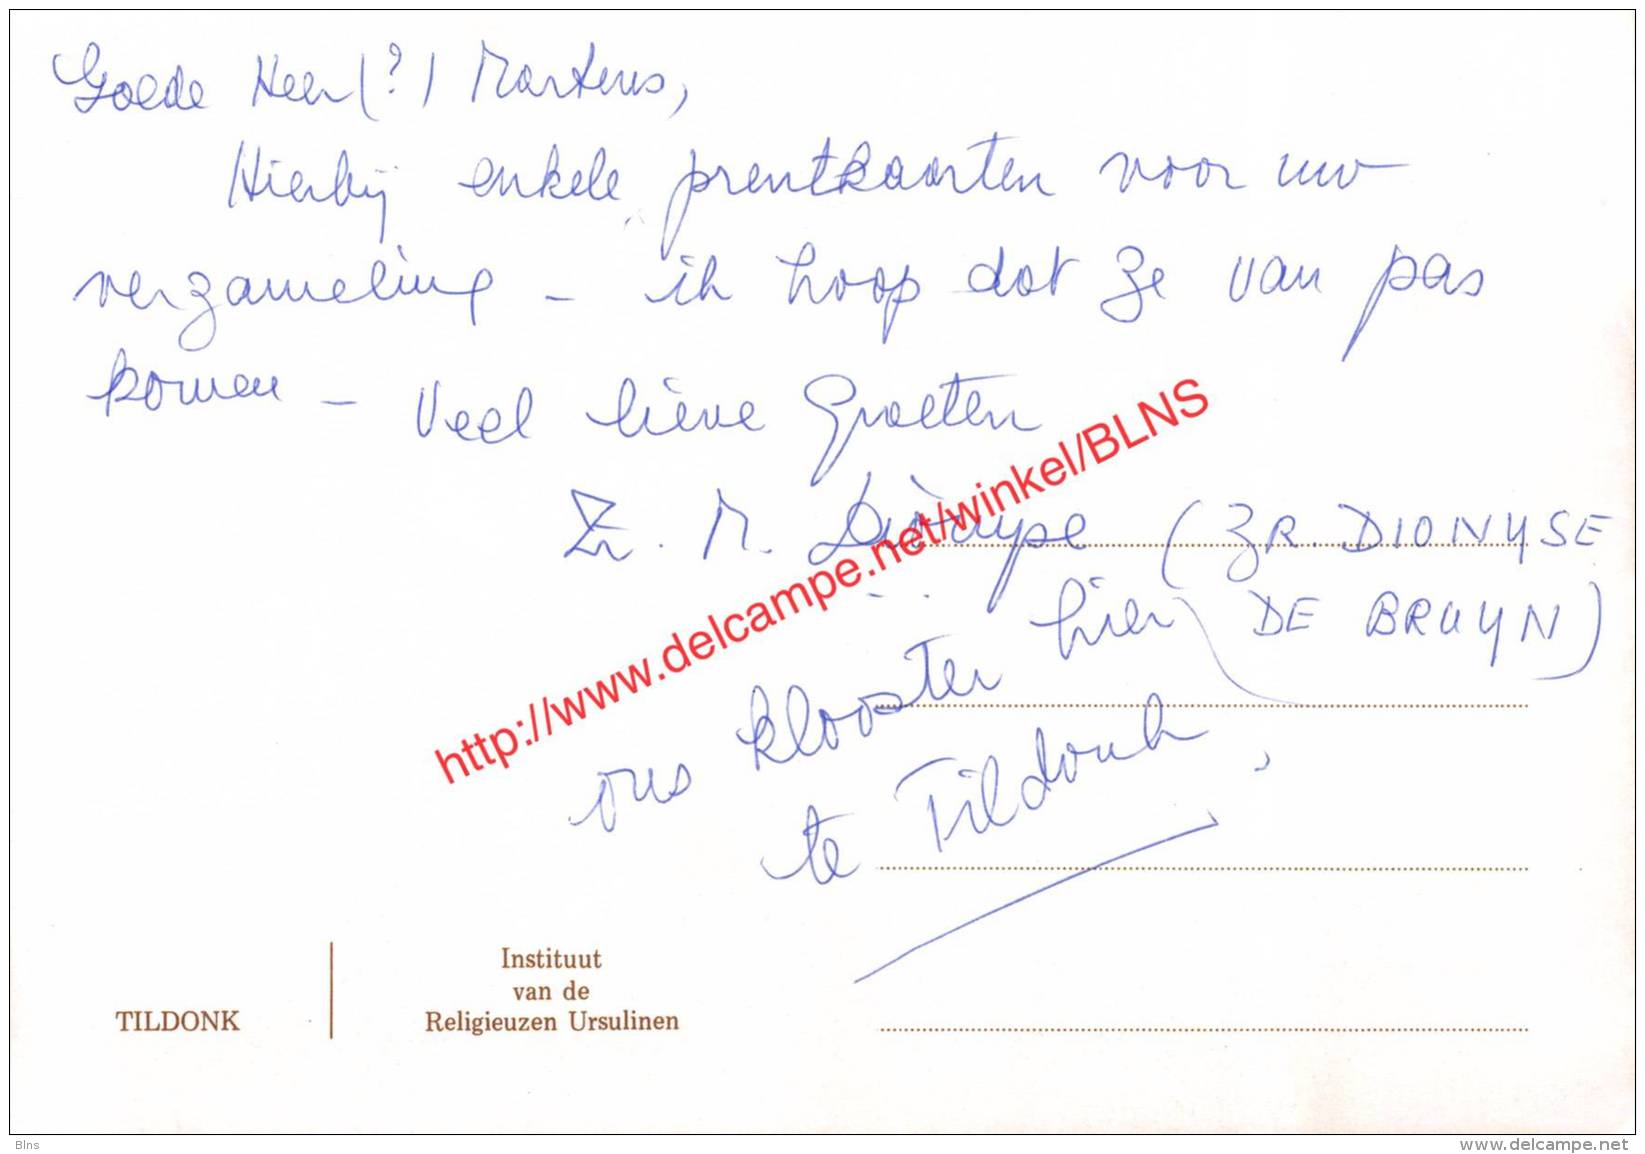 Goede Heer (?) Martens,
Hierbij enkele prentkaarten voor uw
verzameling – ik hoop dat ze van pas
komen – Veel lieve Groeten
Zr. M. Dionyse (ZR. DIONYSE
DE BRUYN)
ons klooster hier
te Tildonk,
http://www.delcampe.net/winkel/BLNS
TILDONK
Instituut
van de
Religieuzen Ursulinen
Blns
www.delcampe.net